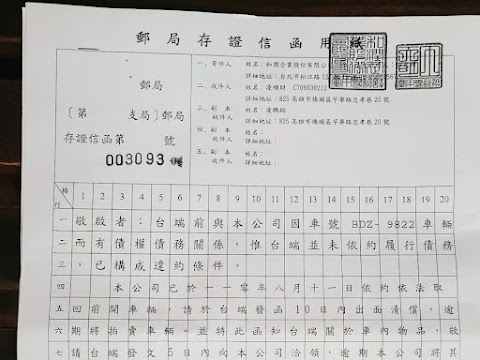 郵局存證信函用紙
郵局
〔第 支局〕郵局
存證信函第 號
003093
一、寄件人 姓名：和潤企業股份有限公
詳細地址：台北市松江路
二、收件人 姓名：凌 財 C709030212
詳細地址：825 高雄市橋頭區芋寮路忠孝巷 20 號
三、副本收件人 姓名：凌
詳細地址：825 高雄市橋頭區芋寮路忠孝巷 20 號
四、副本收件人 姓名：
詳細地址：
五、副本收件人 姓名：
格行 1 2 3 4 5 6 7 8 9 10 11 12 13 14 15 16 17 18 19 20
一 敬啟者：台端前與本公司因車號 BDZ-9822 車輛
二 而有債權債務關係，惟台端並未依約履行債務
三 ，已構成違約條件。
四 本公司已於一一零年八月十一日依約依法取
五 回前開車輛，請於台端發函10日內出面清償，逾
六 期將拍賣車輛。並特此函知台端關於車內物品，敬
七 請台端發文5日內向本公司洽領，逾期本公司將其